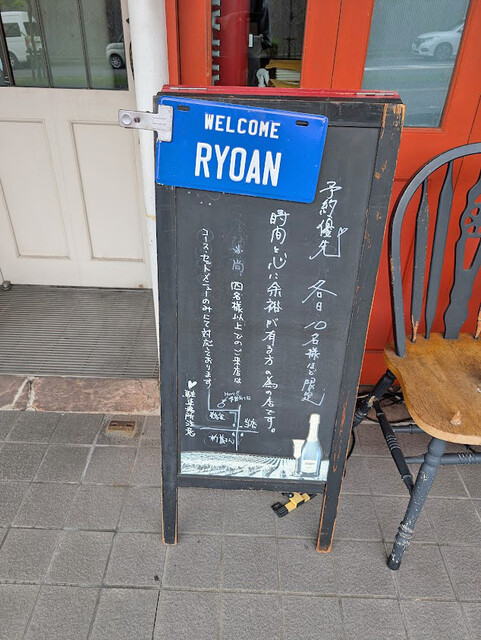 WELCOME
RYOAN
予約優先 各日10名様ほど限定
時間と心に余裕が有る方の為の店です。
尚 四名様以上でのご来店は
コース・セットメニューのみにて対応しております
♥駐车場所注意